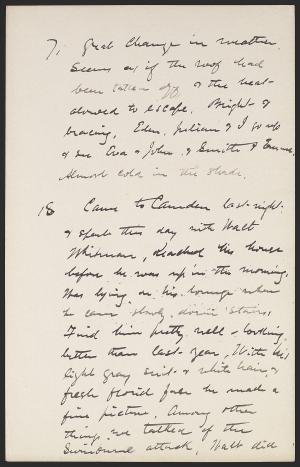 7, Great change in weather.
Seems as if the roof had
been taken off & the heat
allowed to escape. Bright &
bracing, Eden, Julian & I go up
& see Eva & John & Smith & Emma.
Almost cold in the shade.
18 Came to Camden last night
& spent this day with Walt
Whitman, Reached his house
before he was up in the morning.
Was lying on his lounge when
he came slowly down stairs,
Find him pretty well - looking
better than last year, With his
light gray suit & white hair &
fresh florid face he made a
fine picture. Among other
things we talked of the
Swinburne attack, Walt did